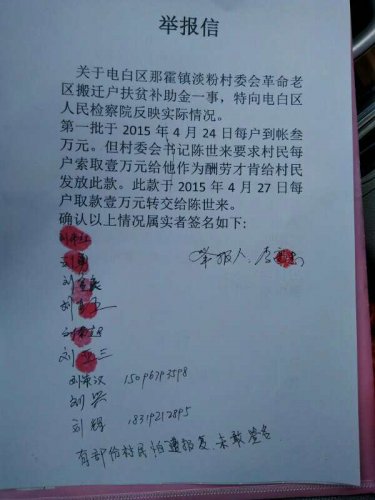 举报信
关于电白区那霍镇淡粉村委会革命老
区搬迁户扶贫补助金一事，特向电白区
人民检察院反映实际情况。
第一批于 2015 年 4 月 24 日每户到帐叁
万元。但村委会书记陈世来要求村民每
户索取壹万元给他作为酬劳才肯给村民
发放此款。此款于 2015 年 4 月 27 日每
户取款壹万元转交给陈世来。
确认以上情况属实者签名如下：
举报人：李
刘
刘
刘
刘
刘 三
刘荣汉 15096793598
刘兴
刘辉 18319212895
有部份村民怕遭报复未敢签名